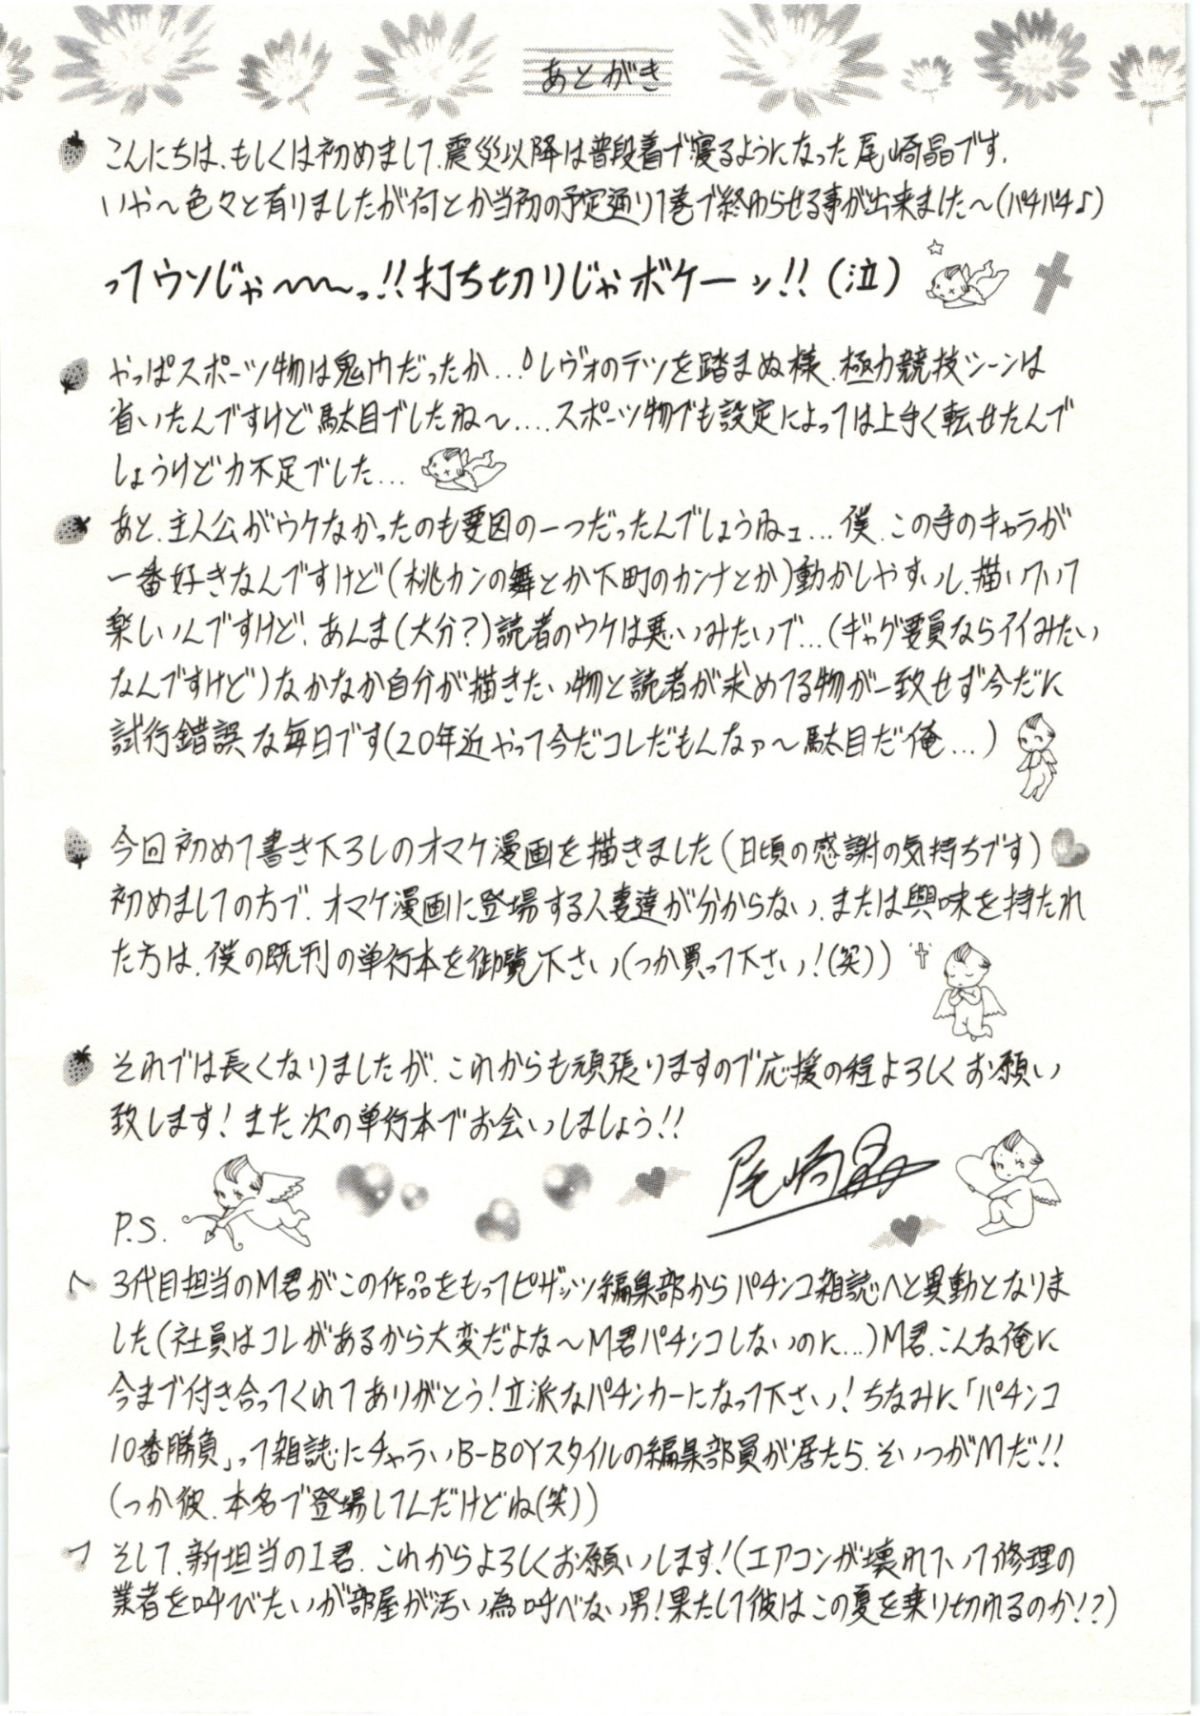 あとがき
こんにちは、もしくは初めまして、震災以降は普段着で寝るようになった尾崎晶です。
いや～色々と有りましたが何とか当初の予定通り1巻で終わらせる事が出来ました～(パチパチ♪)
ってウソじゃ～～～っ!!打ち切りじゃボケーッ!!(泣)
やっぱスポーツ物は鬼門だったか…!?レヴォのテツを踏まぬ様、極力競技シーンは
省いたんですけど駄目でしたね～….スポーツ物でも設定によっては上手く転せたんで
しょうけど力不足でした…
あと、主人公がウケなかったのも要因の一つだったんでしょうねェ…僕、この手のキャラが
一番好きなんですけど(桃カンの舞とか下町のカンナとか)動かしやすいし、描いていて
楽しいんですけど、あんま(大分?)読者のウケは悪いみたいで…(ギャグ要員ならイイみたい
なんですけど)なかなか自分が描きたい物と読者が求めてる物が一致せず今だに
試行錯誤な毎日です(20年近やって今だコレだもんなァ～駄目だ俺…)
今回初めて書き下ろしのオマケ漫画を描きました(日頃の感謝の気持ちです)
初めましての方で、オマケ漫画に登場する人妻達が分からない、または興味を持たれ
た方は、僕の既刊の単行本を御覧下さい(つか買って下さい!(笑))
それでは長くなりましたが、これからも頑張りますので応援の程よろしくお願い
致します!また次の単行本でお会いしましょう!!
尾崎晶
P.S.
3代目担当のM君がこの作品をもってピザッツ編集部からパチンコ雑誌へと異動となりま
した(社員はコレがあるから大変だよな～M君パチンコしないのに…)M君、こんな俺に
今まで付き合ってくれてありがとう!立派なパチンカーになって下さい!ちなみに「パチンコ
10番勝負」って雑誌にチャラいB-BOYスタイルの編集部員が居たら、そいつがMだ!!
(つか彼、本名で登場してんだけどね(笑))
そして、新担当のI君、これからよろしくお願いします!(エアコンが壊れていて修理の
業者を呼びたいが部屋が汚い為呼べない男!果たして彼はこの夏を乗り切れるのか!?)